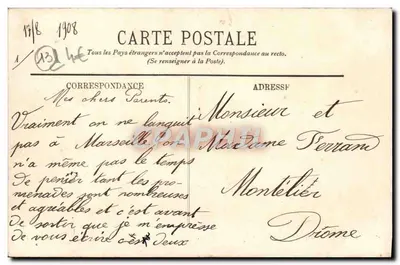 17/8 1908
131 4€
1/
CARTE POSTALE
Tous les Pays étrangers n'acceptent pas la Correspondance au recto.
(Se renseigner à la Poste).
CORRESPONDANCE
Mes chers Parents.
Vraiment on ne languit
pas à Marseille, on
n'a même pas le temps
de penser tant les pro-
menades sont nombreuses
et agréables et c'est avant
de sortir que je m'empresse
de vous écrire ces deux
ADRESSE
Monsieur et
Madame Ferrand
Montélier
Drôme